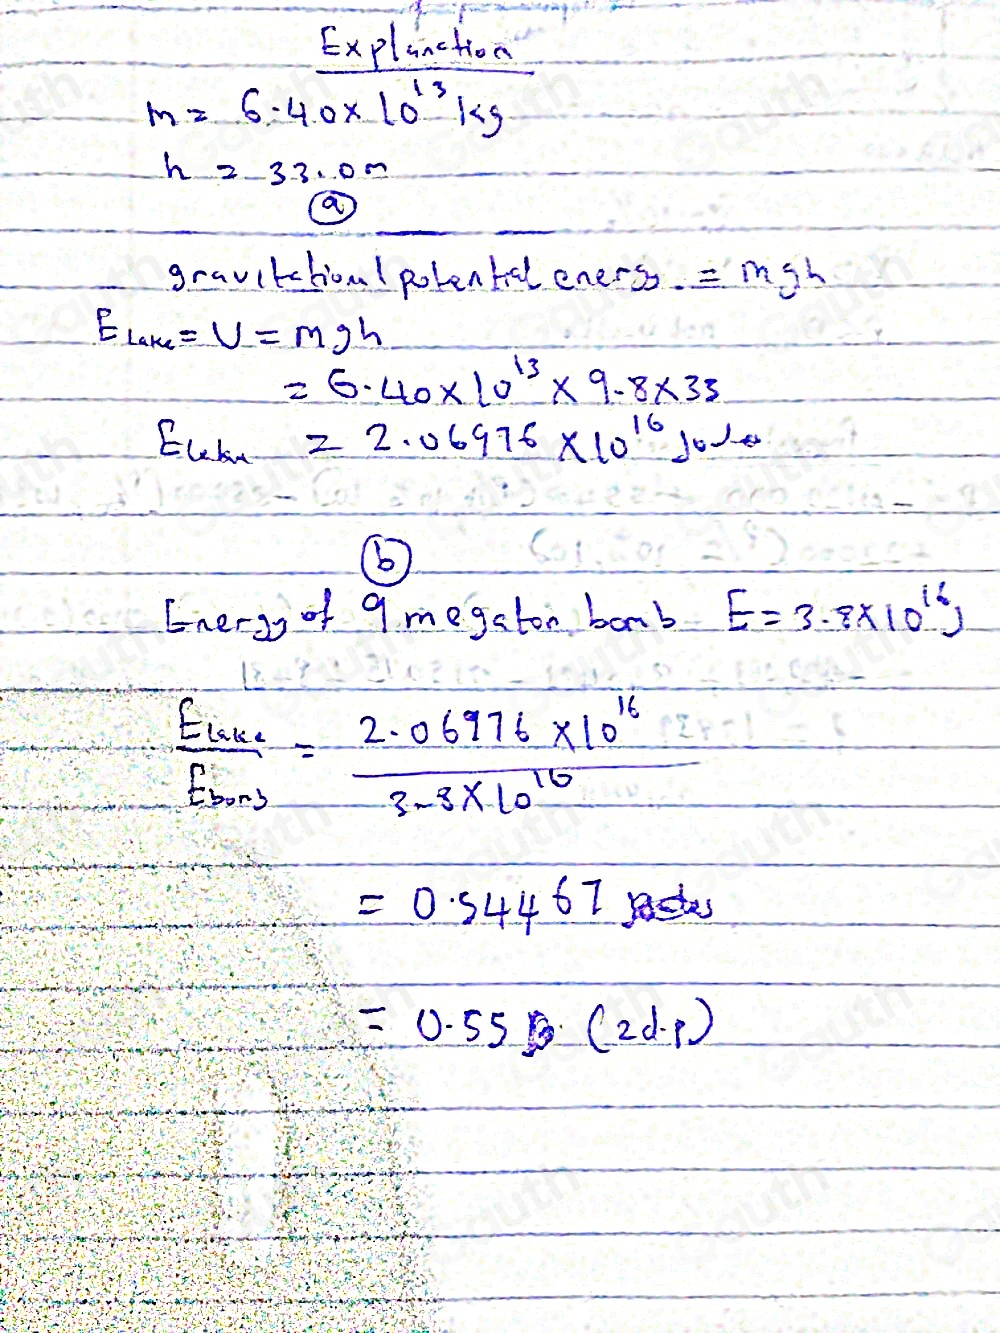 Explanation
m = 6.40 x 10^13 kg
h = 33.0m
(a)
gravitational potential energy. = mgh
E Lake = U = mgh
= 6.40 x 10^13 x 9.8 x 33
E Lake = 2.06976 x 10^16 Joule
(b)
Energy of 9 megaton bomb E = 3.8 x 10^16 J
E Lake / E bomb = 2.06976 x 10^16 / 3.8 x 10^16
= 0.54467
= 0.55 (2d.p)